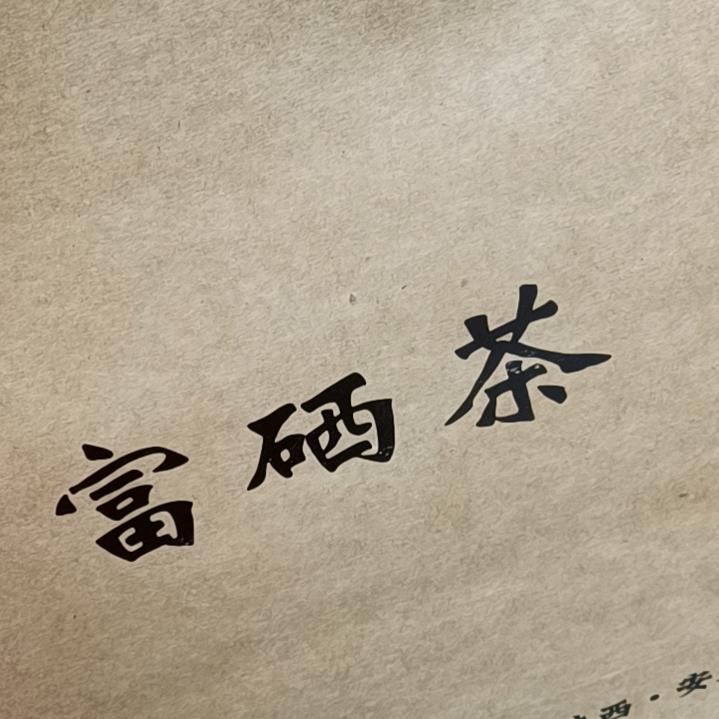 富硒茶
西·安